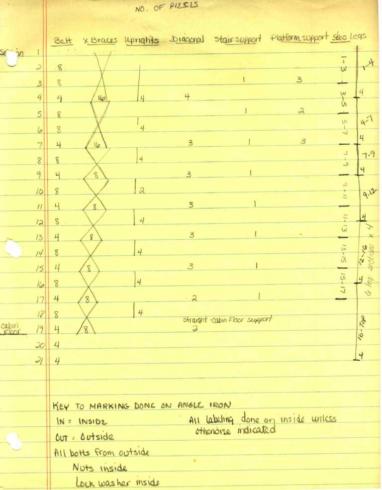 NO. OF PIECES
Belt X Braces Uprights Diagonal Stair support Platform support Legs
1
2 8 1-3 1-4
3 8 1 3
4 4 16 4 4 3-5 4
5 8 1 2 4-7
6 8 4 5-7
7 4 16 3 1 3 4
8 8 4 7-9 7-9
9 4 8 3 1 4
10 8 2 9-11 9-12
11 4 8 3 1
12 8 4 11-13 4
13 4 8 3 1
14 8 4 13-15
15 4 8 3 1
16 8 4 15-17 4
17 4 8 2 1
18 8 4 Straight Cabin Floor support 16-Top
Cabin Floor 19 4 8 2
20 4
21 4 4
KEY TO MARKING DONE ON ANGLE IRON
IN = INSIDE All labeling done on inside unless
OUT = Outside otherwise indicated
All bolts from outside
Nuts inside
Lock washer inside